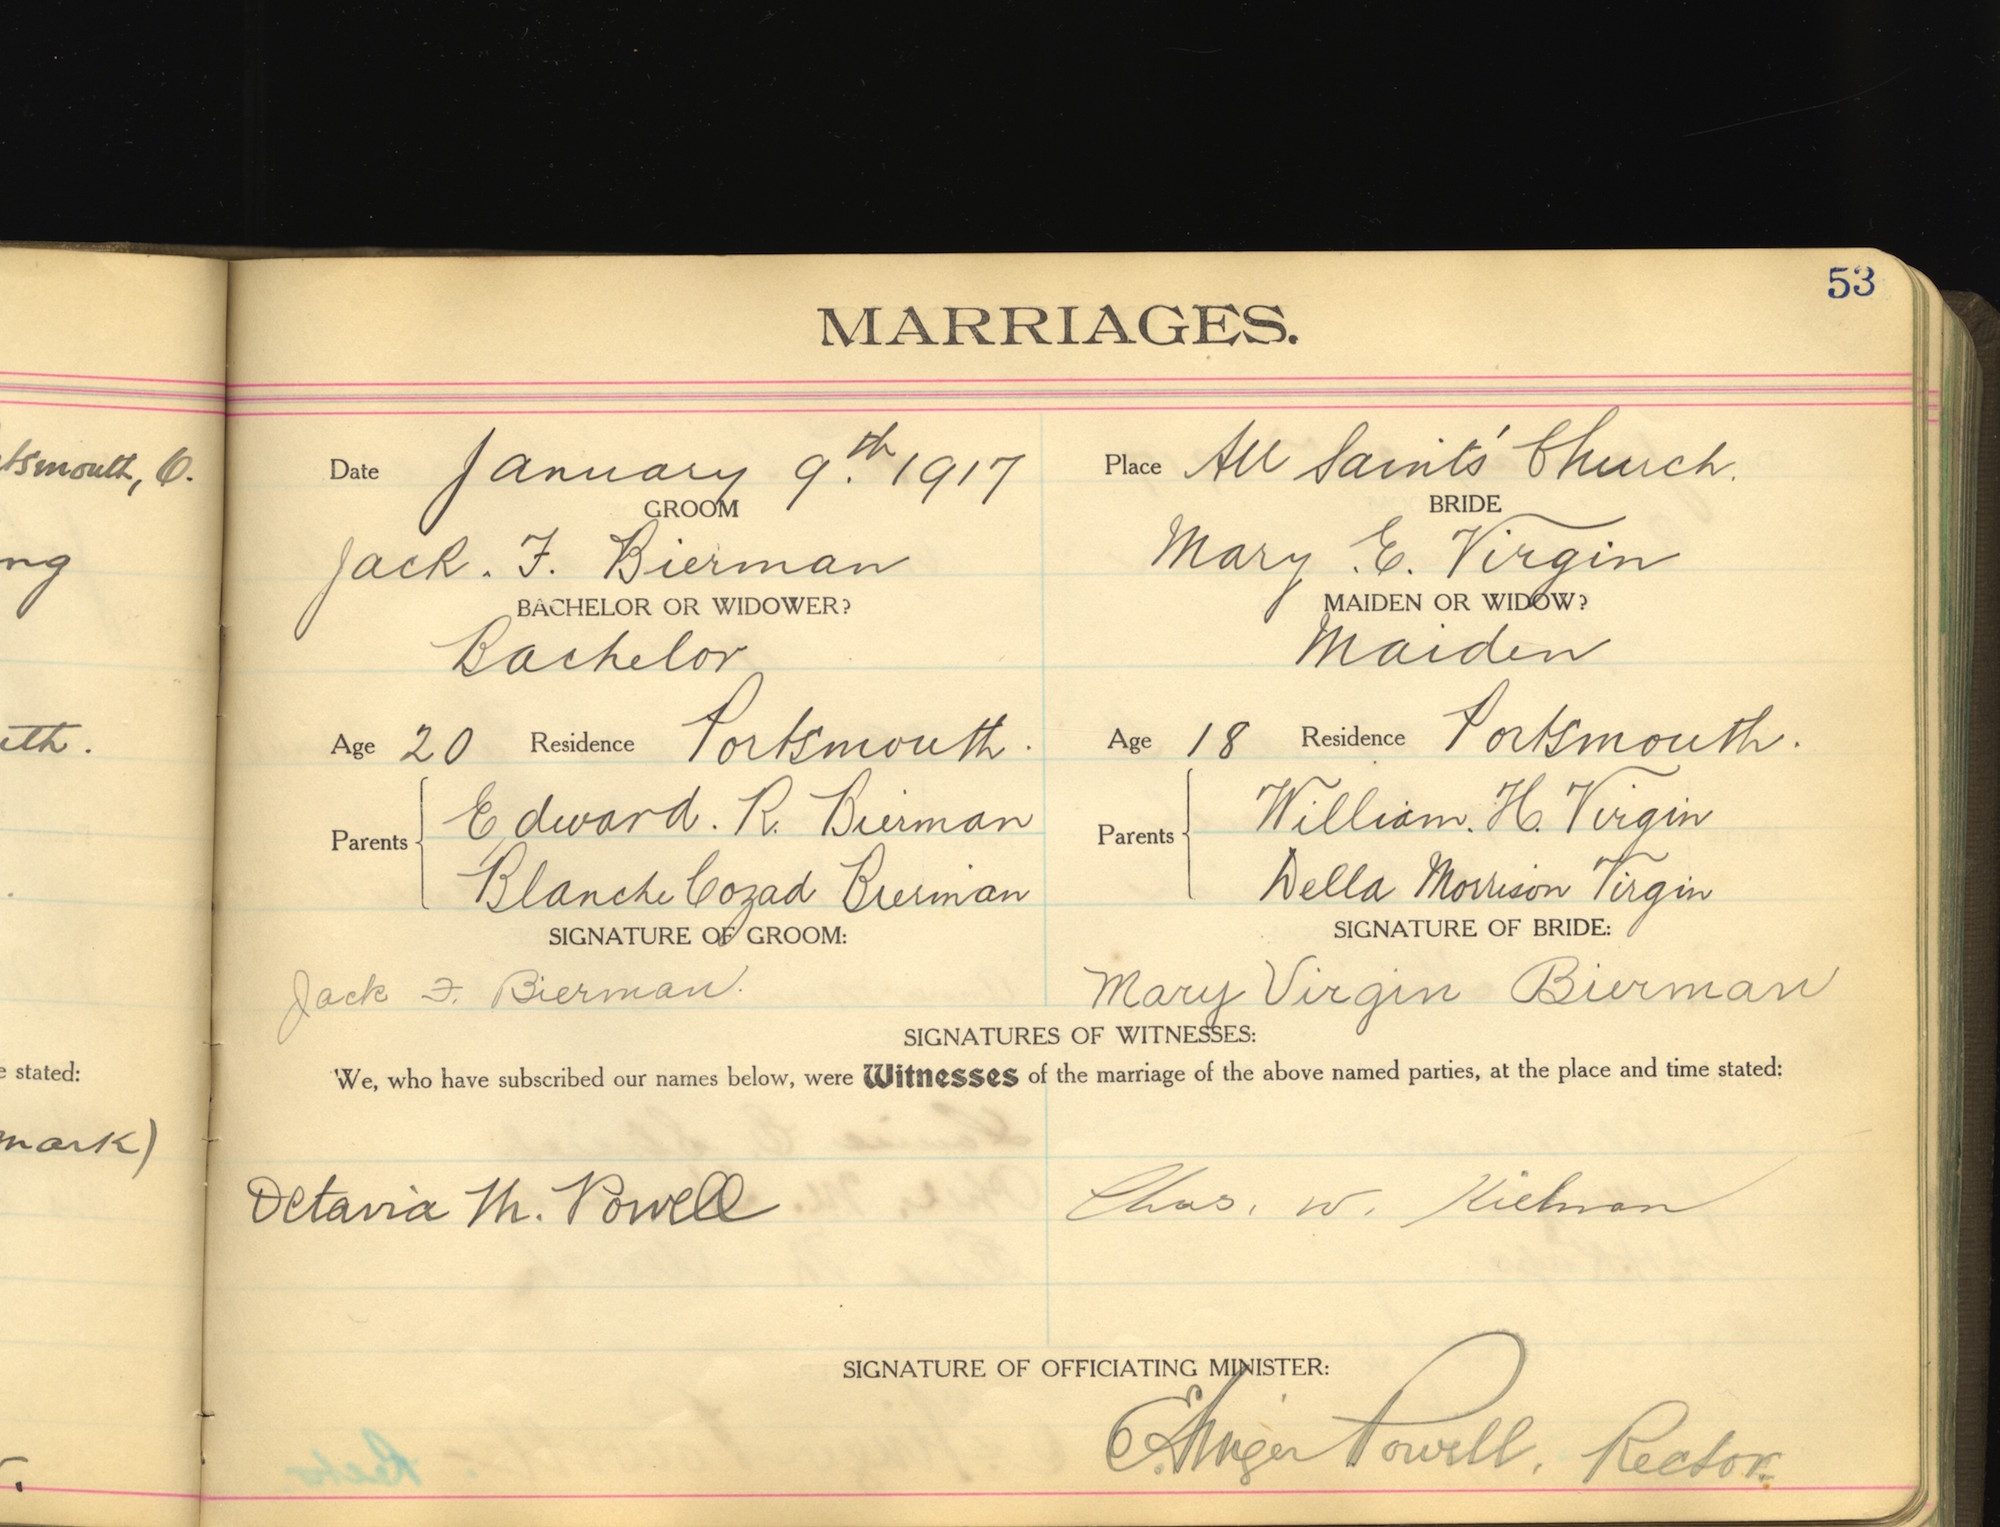 53
MARRIAGES.
Date January 9.th 1917 Place All Saints' Church.
GROOM BRIDE
Jack. F. Bierman Mary E. Virgin
BACHELOR OR WIDOWER? MAIDEN OR WIDOW?
Bachelor Maiden
Age 20 Residence Portsmouth. Age 18 Residence Portsmouth.
Parents Edward. R. Bierman Parents William. H. Virgin
Blanche Cozad Bierman Della Morrison Virgin
SIGNATURE OF GROOM: SIGNATURE OF BRIDE:
Jack F. Bierman. Mary Virgin Bierman
SIGNATURES OF WITNESSES:
We, who have subscribed our names below, were Witnesses of the marriage of the above named parties, at the place and time stated:
Octavia M. Powell Chas. W. Kielman
SIGNATURE OF OFFICIATING MINISTER:
Powell, Rector.
stated:
mark)